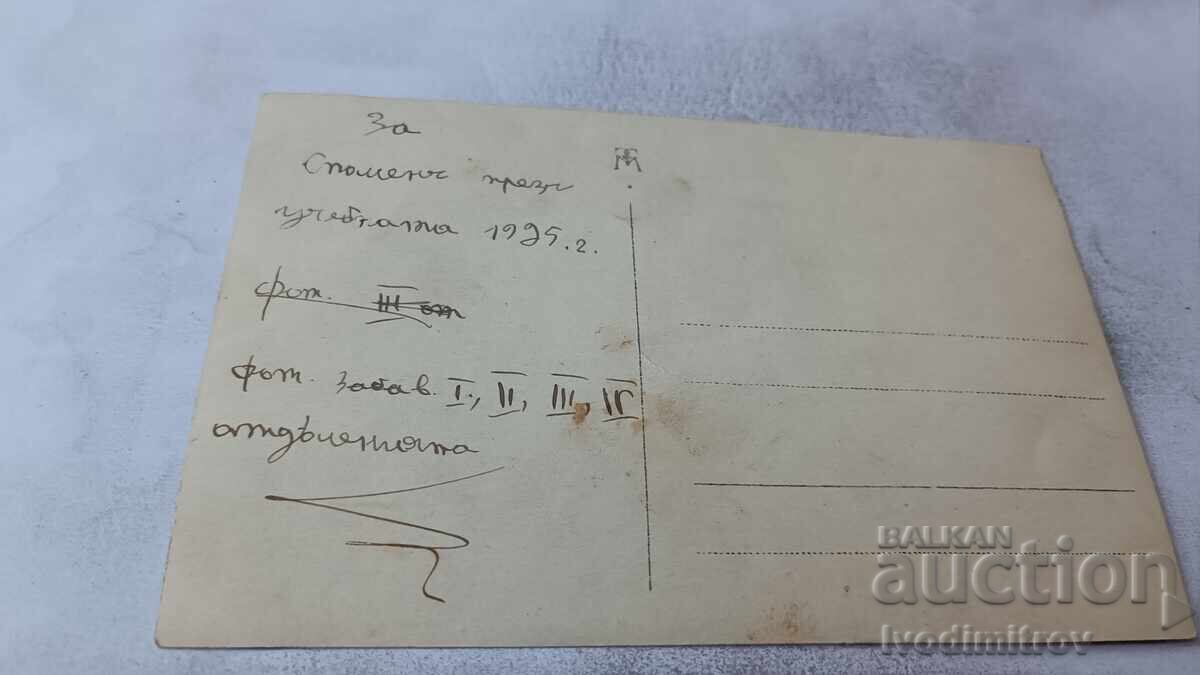 За
Спомень презъ
учебната 1925.г.
фот. III от
фот. Забав. I., II, III, IV
отдѣленията
BALKAN
auction
Ivodimitrov